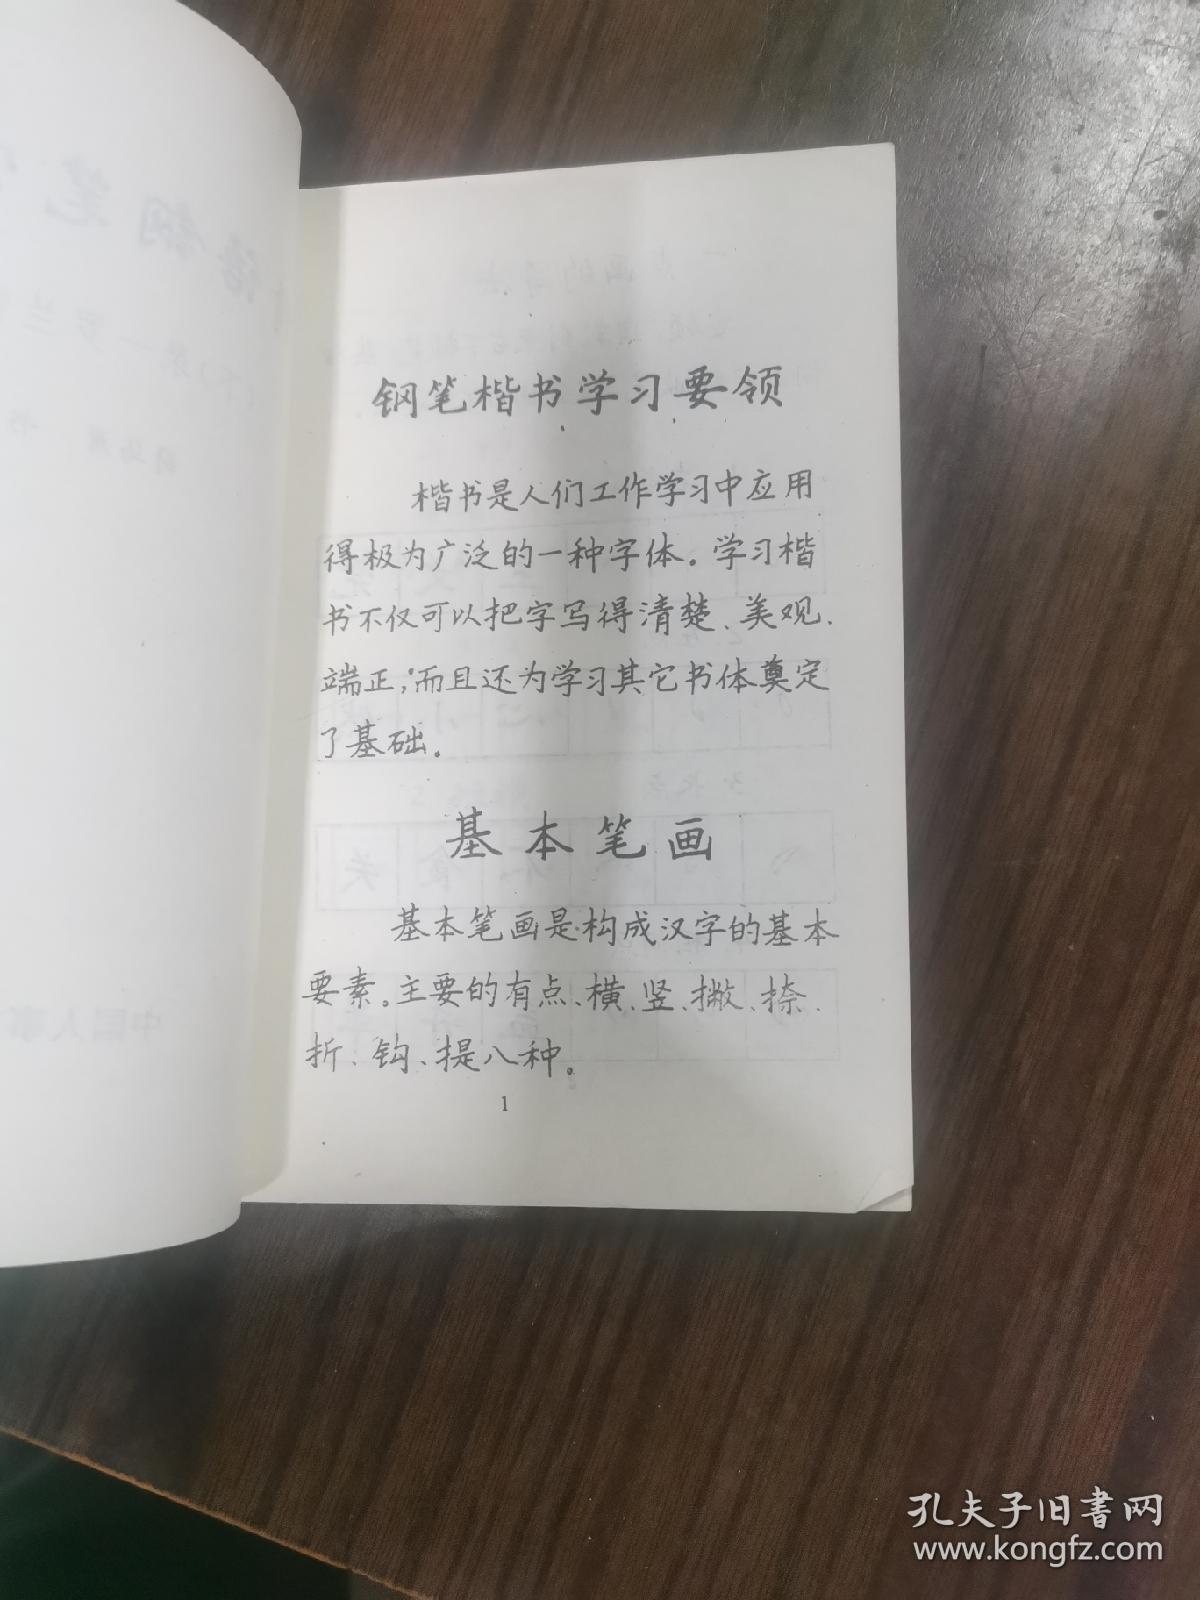 钢笔楷书学习要领
楷书是人们工作学习中应用
得极为广泛的一种字体。学习楷
书不仅可以把字写得清楚、美观、
端正,而且还为学习其它书体奠定
了基础.
基本笔画
基本笔画是构成汉字的基本
要素。主要的有点、横、竖、撇、捺、
折、钩、提八种。
1
孔夫子旧书网
www.kongfz.com